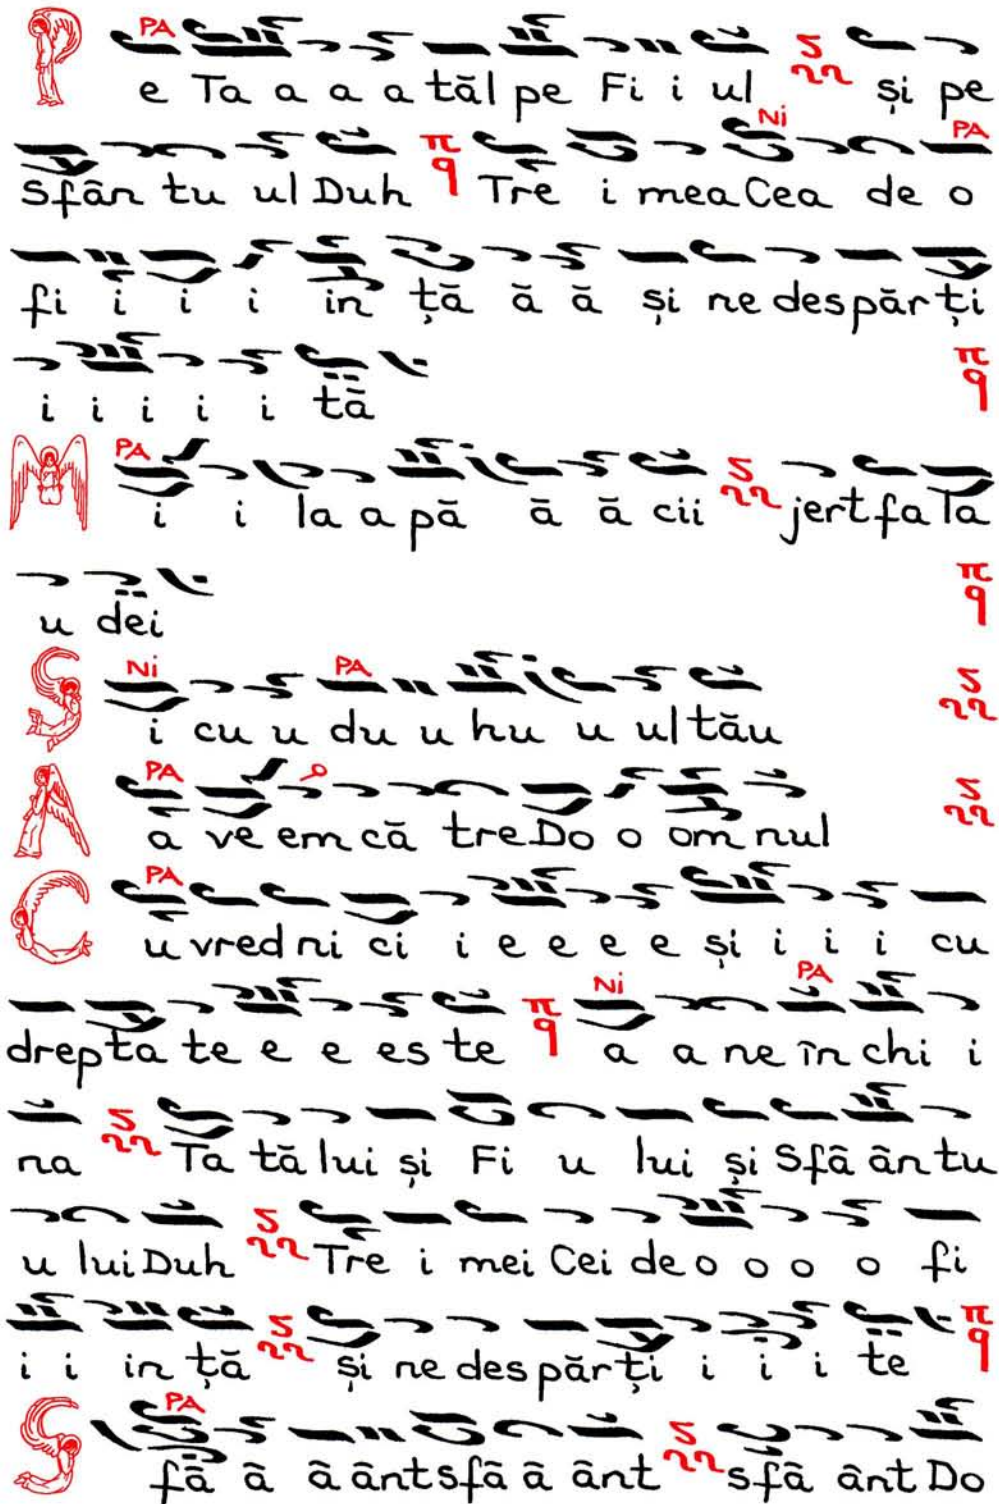 PA
Pe Ta a a a tăl pe Fi i ul și pe
Ni PA
Sfân tu ul Duh π q Tre i mea Cea de o
fi i i i in ță ă ă și ne des păr ți
i i i i i tă π q
PA
Mi i la a pă ă ă cii jert fa la
u dei π q
Ni PA
Și cu u du u hu u ul tău
PA
A ve em că tre Do o om nul
PA
Cu vred ni ci i e e e e și i i i cu
Ni PA
drep ta te e e es te π q a a ne în chi i
na Ta tă lui și Fi u lui și Sfâ ân tu
u lui Duh Tre i mei Cei de o o o o fi
i i in ță și ne des păr ți i i i te π q
PA
Sfâ â â ânt sfâ â ânt sfâ ânt Do